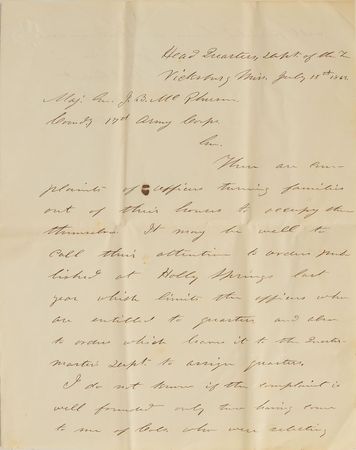 Head Quarters, Dept. of the T.
Vicksburg Miss. July 18th 1863.
Maj. Gn. J. B. McPherson
Comdg 17th Army Corps
Gn.
There are com-
plaints of officers turning families
out of their houses to occupy them
themselves. It may be well to
call their attention to orders pub-
lished at Holly Springs last
year which limits the officers who
are entitled to quarters and also
to orders which leave it to the Quarter
masters Dept. to assign quarters.
I do not know if the complaint is
well founded only two having come
to me of Cols. who were selecting